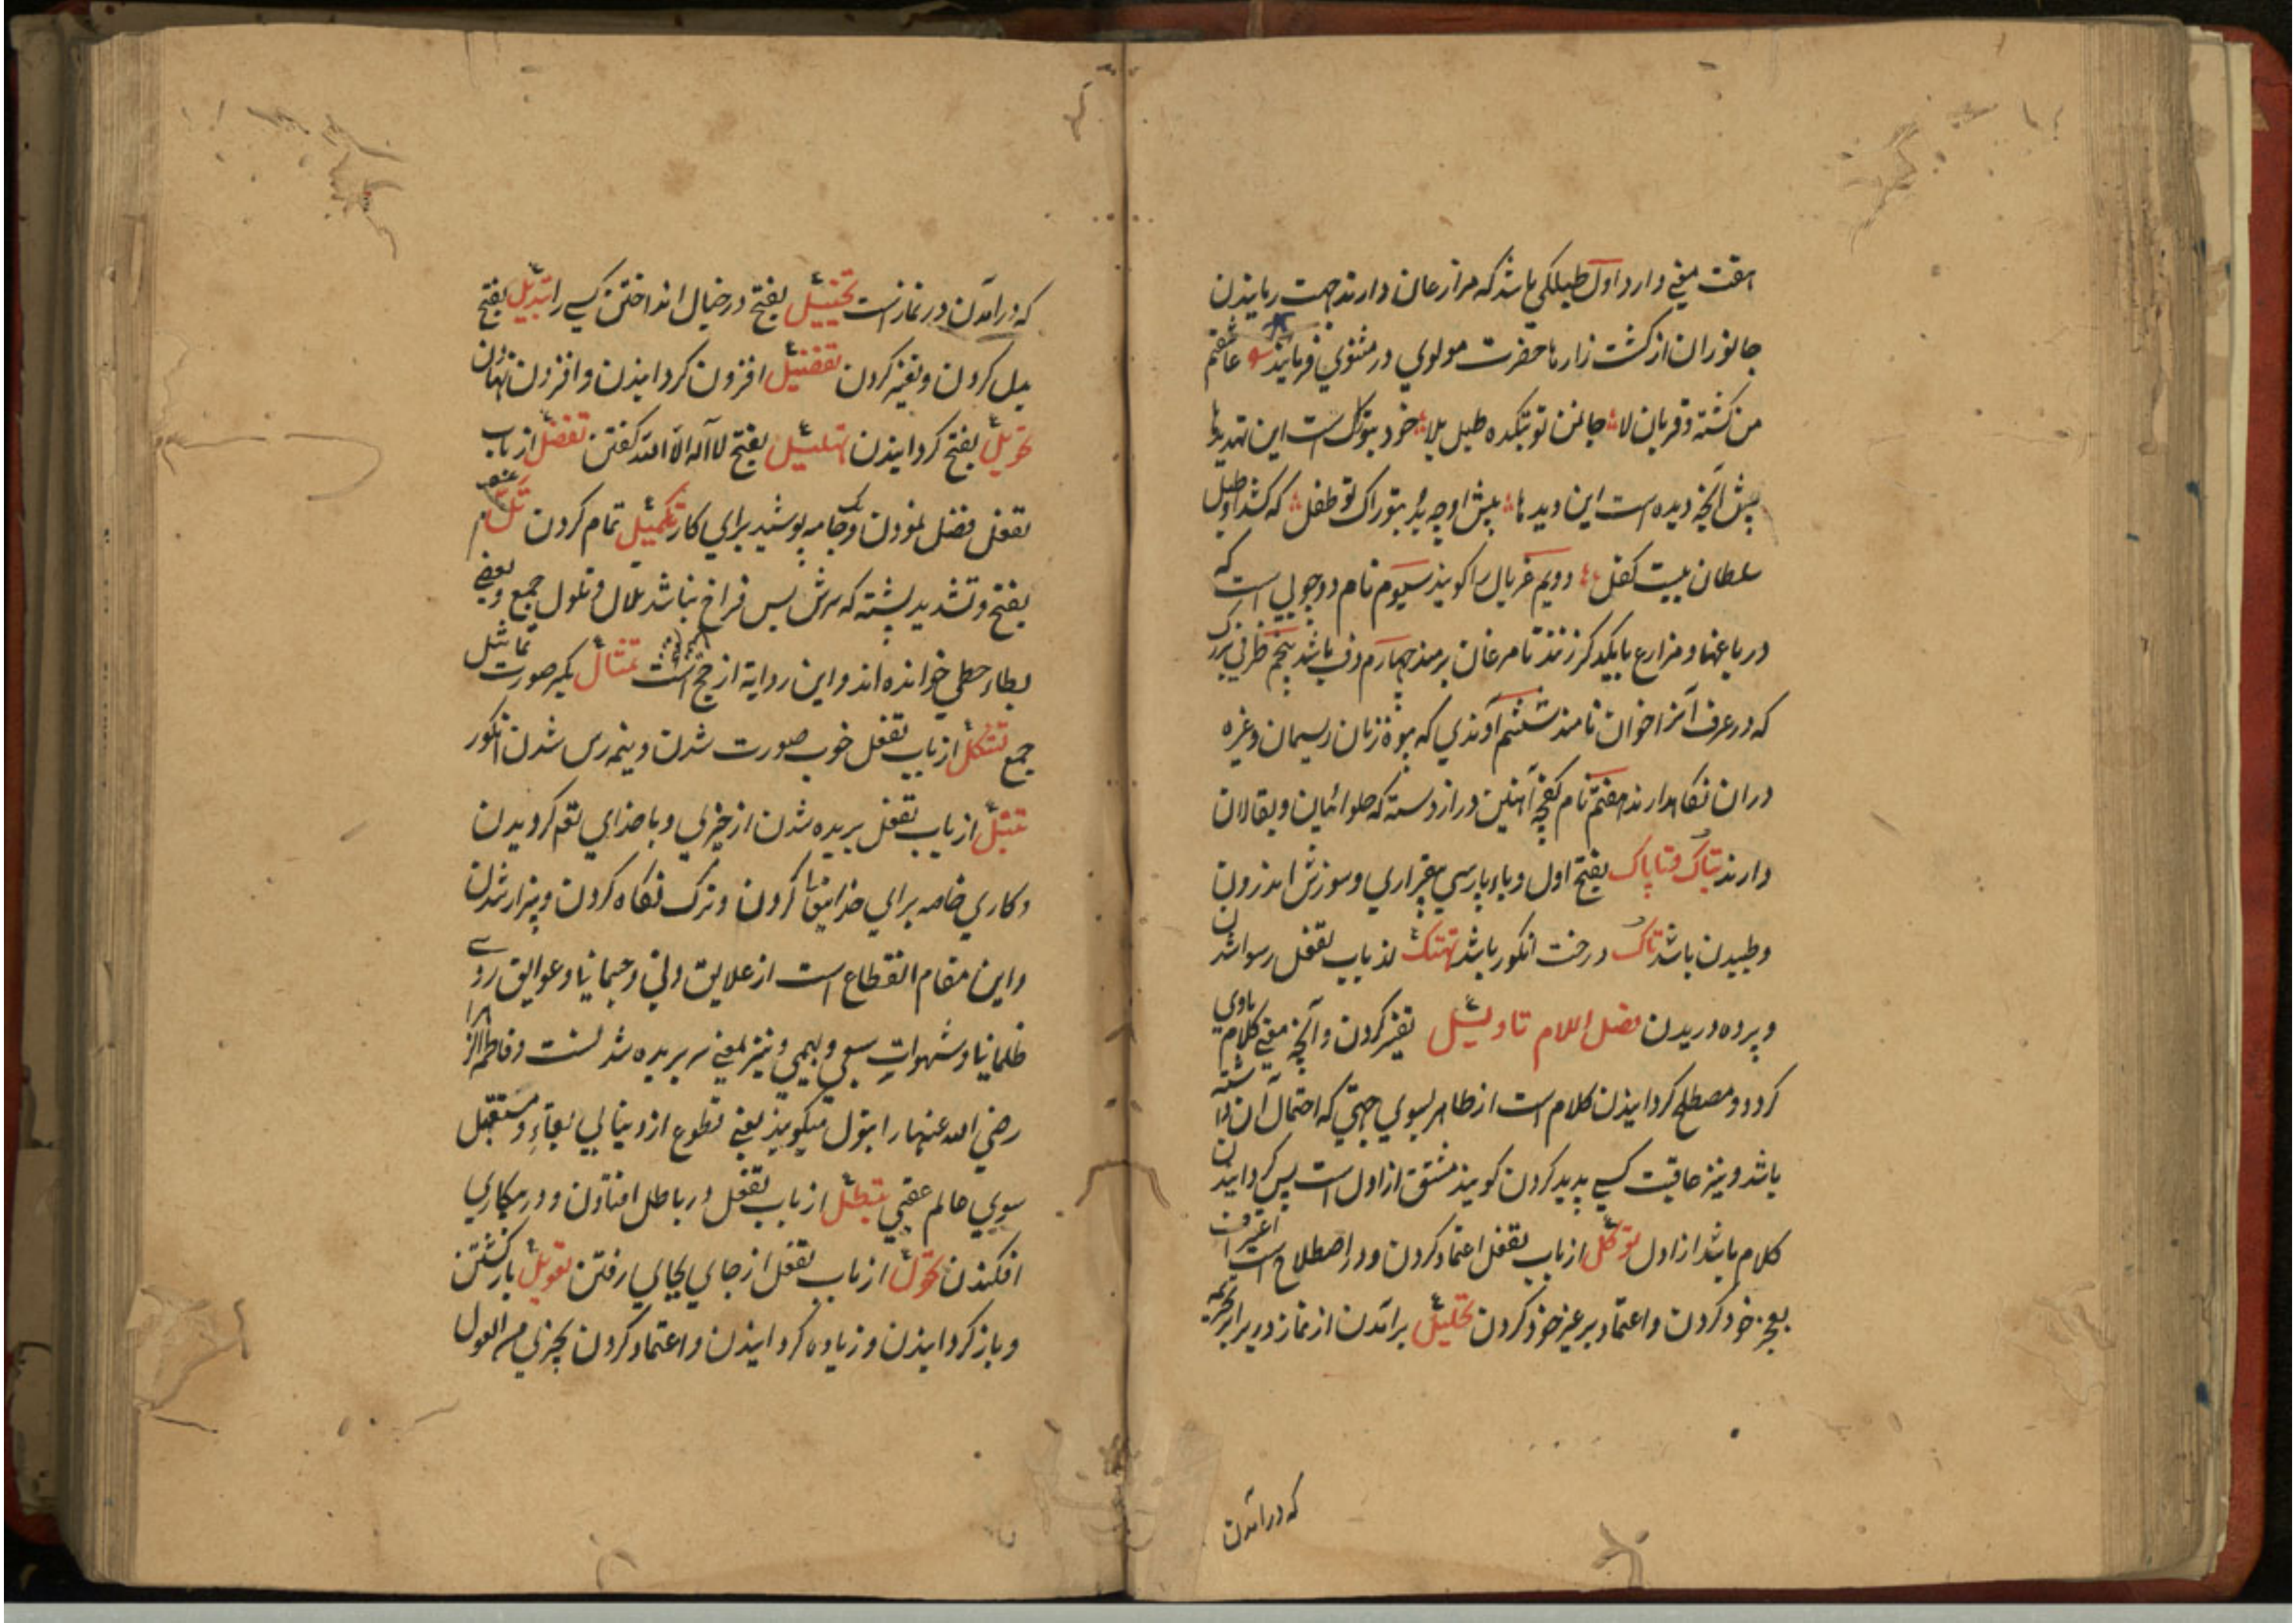 هفت معنی دارد اول طبلکی باشد که مزارعان دارند جهت رمانیدن
جانوران از کشت زارها حضرت مولوی در مثنوی فرمایند عاشقم
من کشته و قربان لا جان من نوبتکده طبل بلا خود تبوراک است این تهدیدها
پیش آنچه دیده است این دیدها پیش او چه بود تبوراک تو طفل که کشد او طبل
سلطان بیست کفل دویم غربال را کویند سیوم نام دو چوبی است که
در باغها و مزارع بایکدکر زنند تا مرغان برمند چهارم دف باشد پنجم ظرفی بزرک
که در عرف آنرا خوان نامند ششم آوندی که بیوه زنان ریسمان و غیره
در ان نکاهدارند هفتم نام کفچه آهنین دراز دسته که حلوائیان و بقالان
دارند تباک و تاپاک بفتح اول و باء پارسی بیقراری و سوزش اندرون
و طپیدن باشد تاک درخت انکور باشد تهتک از باب تفعل رسوا شدن
و پرده دریدن فصل اللام تاویل تفسیر کردن و آنچه معنی کلام باوی
کردد و مصطلح کردانیدن کلام است از ظاهر بسوی جهتی که احتمال آن داشته
باشد و نیز عاقبت کسی پدید کردن کویند مشتق از اول است پس کردانیدن
کلام باشد از اول توکل از باب تفعل اعتماد کردن و در اصطلاح است اعتراف
بعجز خود کردن و اعتماد بر غیر خود کردن تحلیل برآمدن از نماز در برابر تحریمه
که درآمدن
که درآمدن در نماز است تخییل بفتح در خیال انداختن کسی را تبدیل بفتح
بدل کردن و تغیر کردن تفضیل افزون کردانیدن و افزون نهادن
بفتح کردانیدن تهلیل بفتح لا آله الا الله کفتن تفضل از باب
تفعل فضل نمودن و جامه پوشید برای کار تکمیل تمام کردن تل
بفتح و تشدید پشته که سرش بس فراخ نباشد تلال و تلول جمع و بعضی
بطاء حطی خوانده اند و این روایة از است تمثال بکسر صورت تماثیل
جمع تشکل از باب تفعل خوب صورت شدن و نیم رس شدن انکور
تبتل از باب تفعل بریده شدن از چیزی و با خدای کرویدن
و کاری خاصه برای خدایتعالی کردن و ترک نکاه کردن و بیزار شدن
و این مقام انقطاع است از علایق دنی و جسمانیا و عوایق روی
ظلمانیا و شهوات سبعی و بهیمی و نیز بمعنی بریده شد نست و فاطمه الزهرا
رضی الله عنها را بتول میکویند یعنی قطوع از دنیا لی بقاء و مستقبل
سوی عالم عقبی تبطل از باب تفعل در باطل افتادن و در بیکاری
افکندن تحول از باب تفعل از جای بجای رفتن تعویل بازکشتن
و باز کردانیدن و زیاده کردانیدن و اعتماد کردن بچیزی من العول